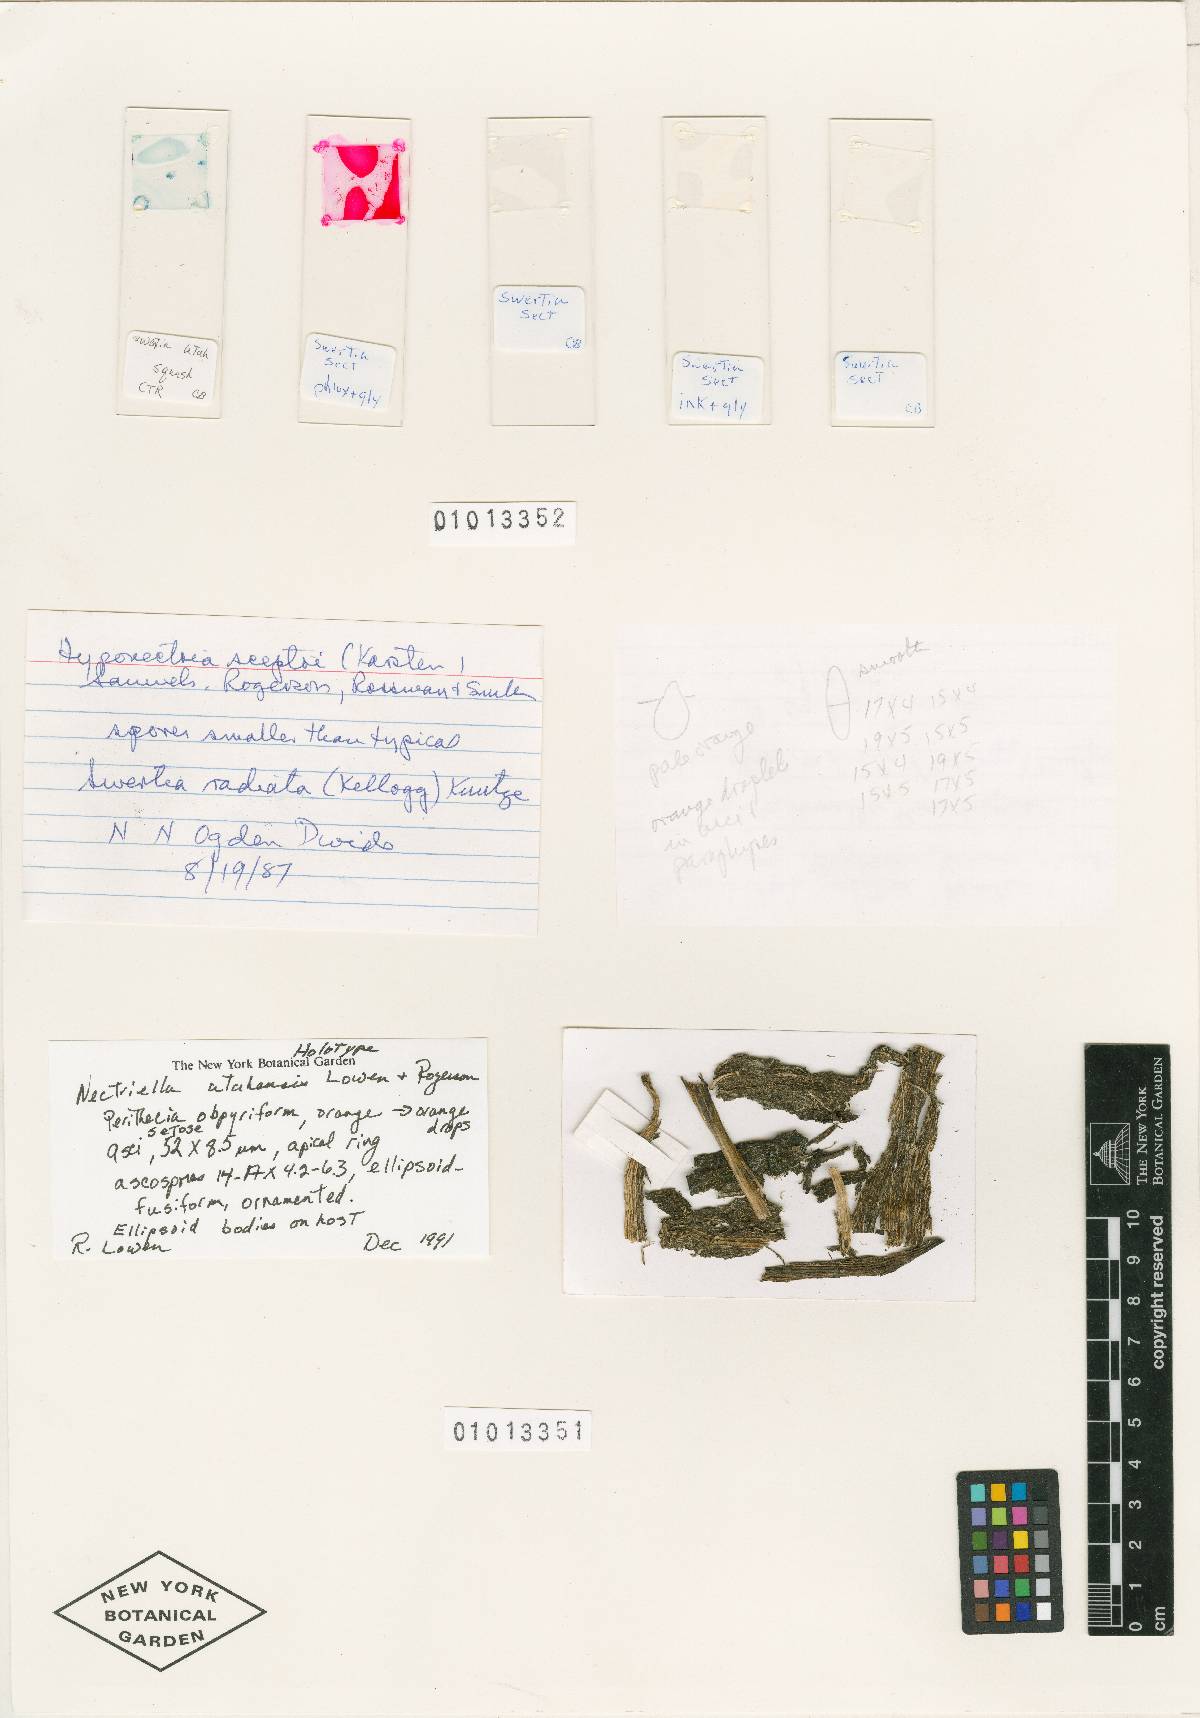 Swertia Utah
squash
CTR CB
Swertia
Sect
phlox+gly
Swertia
Sect
CB
Swertia
Sect
ink + gly
Swertia
Sect
CB
01013352
Hyponectria sceptri (Karsten)
Samuels, Rogerson, Rossman &
spores smaller than typical
Swertia radiata (Kellogg) Kuntze
N N Ogden Divide
8/19/87
pale orange
orange droplets
in asci &
paraphyses
smooth
17x4 15x4
19x5 15x5
15x4 19x5
15x5 17x5
17x5
Holotype
The New York Botanical Garden
Nectriella utahensis Lowen + Rogerson
Perithecia obpyriform, orange → orange drops
setose
asci, 52 X 8.5 um, apical ring
ascospores 14-17 X 4.2-6.3, ellipsoid-
fusiform, ornamented.
Ellipsoid bodies on host
R. Lowen Dec 1991
01013351
NEW YORK
BOTANICAL
GARDEN
THE NEW YORK
BOTANICAL GARDEN
copyright reserved
10 9 8 7 6 5 4 3 2 1 0
cm